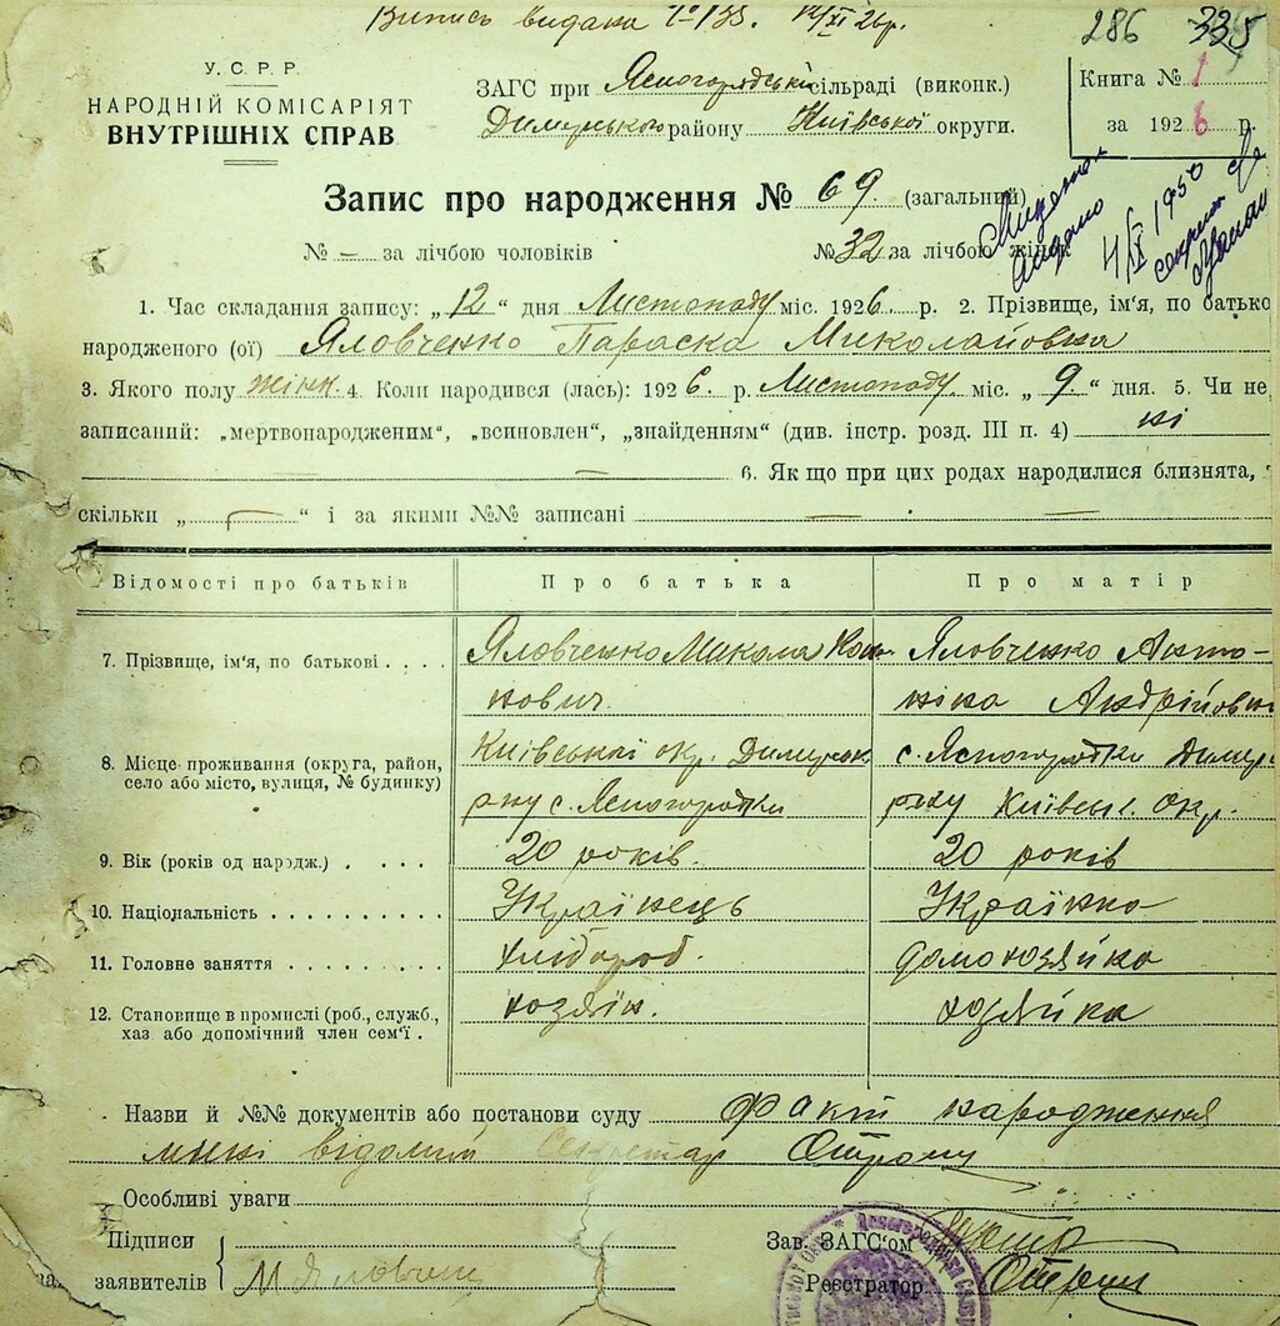 Випись видана 14/XI 26р.
286 335
У. С. Р. Р.
НАРОДНІЙ КОМІСАРІЯТ
ВНУТРІШНІХ СПРАВ
ЗАГС при Ясногородській сільраді (виконк.)
Димерського району Київської округи.
Книга № 1
за 1926 р.
Запис про народження № 69. (загальний)
№ – за лічбою чоловіків № 32 за лічбою жінок
видано
4/IX 1950
1. Час складання запису: „12“ дня Листопаду міс. 1926. р. 2. Прізвище, ім'я, по батько
народженого (ої) Яловченко Параска Миколаївна
3. Якого полу жінк. 4. Коли народився (лась): 1926. р. Листопаду. міс. „9.“ дня. 5. Чи не
записаний: „мертвонародженим“, „всиновлен“, „знайденням“ (див. інстр. розд. III п. 4) ні
— — 6. Як що при цих родах народилися близнята,
скільки „ — “ і за якими №№ записані — —
Відомості про батьків Про батька Про матір
7. Прізвище, ім'я, по батькові . . . . Яловченко Микола Яловченко Анто-
нович. ніна Андрійовн
8. Місце проживання (округа, район,
село або місто, вулиця, № будинку)
Київської окр. Димерськ с. Ясногородки Димер.
р-ну с. Ясногородки р-ну Київськ. Окр.
9. Вік (років од нарідж.) . . . . 20 років. 20 років
10. Національність . . . . . . . . . . Українець Українка
11. Головне заняття . . . . . . . . хлібороб. домохозяйка
12. Становище в промислі (роб., служб.,
хаз або допомічний член сем'ї . хозяїн. хозяйка
Назви й №№ документів або постанови суду Факт народження
мині відомий Секретар
Особливі уваги
Підписи
заявителів { М Яловчен
Зав. ЗАГС'ом
Реєстратор